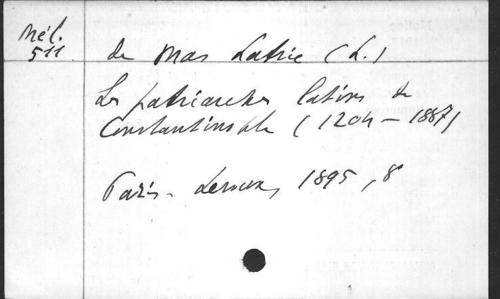 Mél.
511
de Mas Latrie (L.)
Les patriarches latins de
Constantinople (1204-1887)
Paris. Leroux, 1895, 8°